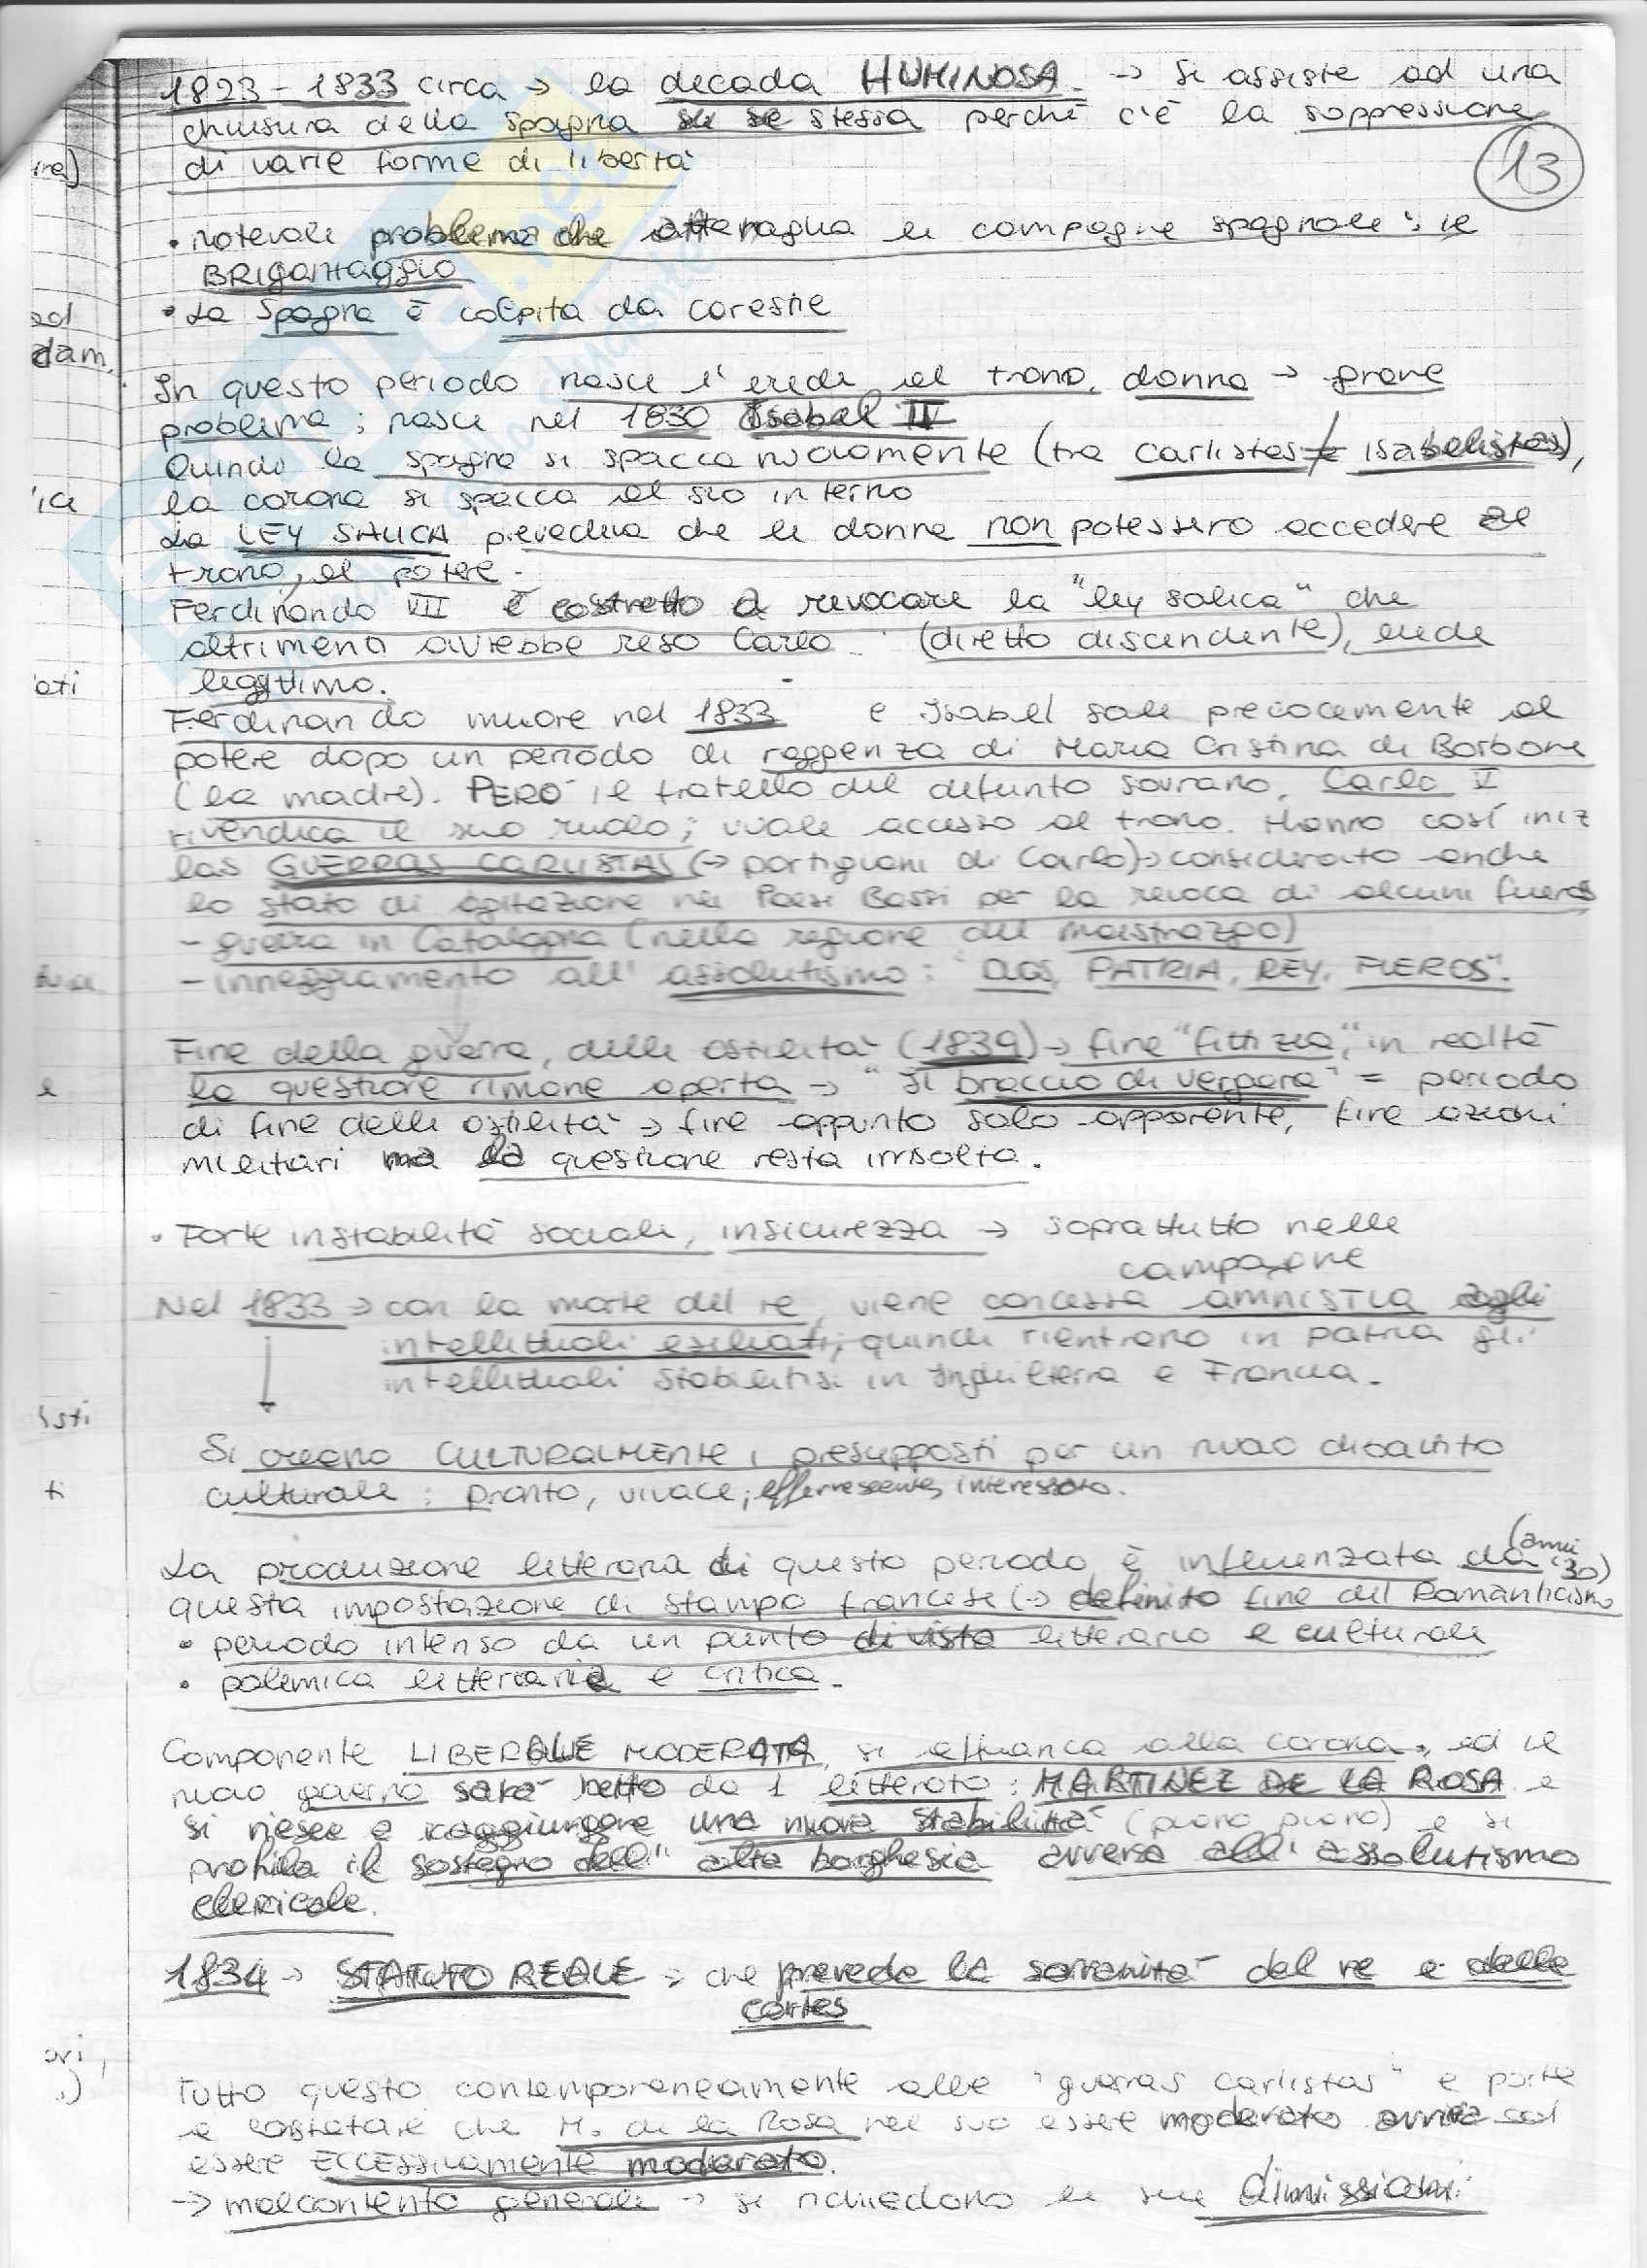 1823-1833 circa → la decada HUMINOSA → si assiste ad una
chiusura della Spagna su se stessa perché c'è la soppressione
di varie forme di libertà
13
• notevole problema che attanaglia le campagne spagnole: il
BRIGANTAGGIO
• La Spagna è colpita da carestie
In questo periodo nasce l'erede al trono, donna → grave
problema; nasce nel 1830 Isabel II
Quindi la Spagna si spacca nuovamente (tra carlistas ≠ isabelistas),
la corona si spacca al suo interno
La LEY SALICA prevedeva che le donne non potessero accedere al
trono, al potere.
Ferdinando VII è costretto a revocare la "ley salica" che
altrimenti avrebbe reso Carlo (diretto discendente), erede
legittimo.
Ferdinando muore nel 1833 e Isabel sale precocemente al
potere dopo un periodo di reggenza di Maria Cristina di Borbone
(la madre). PERÒ il fratello del defunto sovrano, Carlo V
rivendica il suo ruolo; vuole accesso al trono. Hanno così iniz
las GUERRAS CARLISTAS (→ partigiani di Carlo) → considerato anche
lo stato di agitazione nei Paesi Bassi per la revoca di alcuni fueros
- guerra in Catalogna (nella regione del maestrazgo)
- inneggiamento all'assolutismo: "DIOS, PATRIA, REY, FUEROS".
Fine della guerra, delle ostilità (1839) → fine "fittizia", in realtà
la questione rimane aperta → "El braccio di vergara" = periodo
di fine delle ostilità → fine appunto solo apparente, fine azioni
militari ma la questione resta irrisolta.
• Forte instabilità sociale, insicurezza → soprattutto nelle
campagne
Nel 1833 → con la morte del re, viene concessa amnistia agli
intellettuali esiliati, quindi rientrano in patria gli
intellettuali stabilitisi in Inghilterra e Francia.
Si creano CULTURALMENTE i presupposti per un nuovo dibattito
culturale: pronto, vivace, effervescente, interessato.
La produzione letteraria di questo periodo è influenzata da (anni '30)
questa impostazione di stampo francese (→ definito fine del Romanticismo
• periodo intenso da un punto di vista letterario e culturale
• polemica letteraria e critica.
Componente LIBERALE MODERATA, si affianca alla corona, ed il
nuovo governo sarà retto da 1 letterato: MARTINEZ DE LA ROSA e
si riesce a raggiungere una nuova stabilità (piano piano) e si
profila il sostegno dell'alta borghesia avversa all'assolutismo
clericale.
1834 → STATUTO REALE → che prevede la sovranità del re e delle
cortes
Tutto questo contemporaneamente alle "guerras carlistas" e porta
a constatare che M. de la Rosa nel suo essere moderato arriva ad
essere ECCESSIVAMENTE moderato.
→ malcontento generale → si richiedono le sue dimissioni.